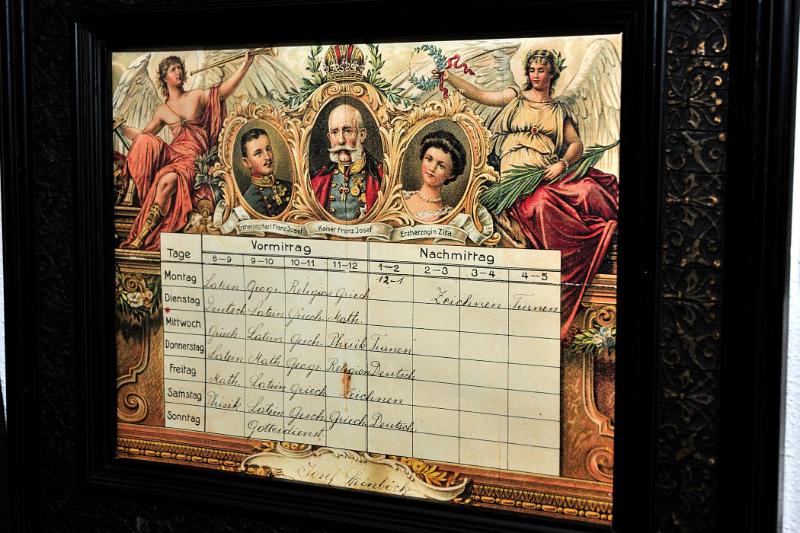 Erzherzog Karl Franz Josef Kaiser Franz Josef Erzherzogin Zita
Tage Vormittag Nachmittag
8–9 9–10 10–11 11–12 1–2 2–3 3–4 4–5
12-1
Montag Latein Geogr. Religion Griech Zeichnen Turnen
Dienstag Deutsch Latein Griech. Math.
Mittwoch Griech Latein Gesch. Phisik Turnen
Donnerstag Latein Math Geogr. Religion Deutsch
Freitag Math. Latein Griech Zeichnen
Samstag Phisik Latein Gesch Griech. Deutsch
Sonntag Gottesdienst.
Josef